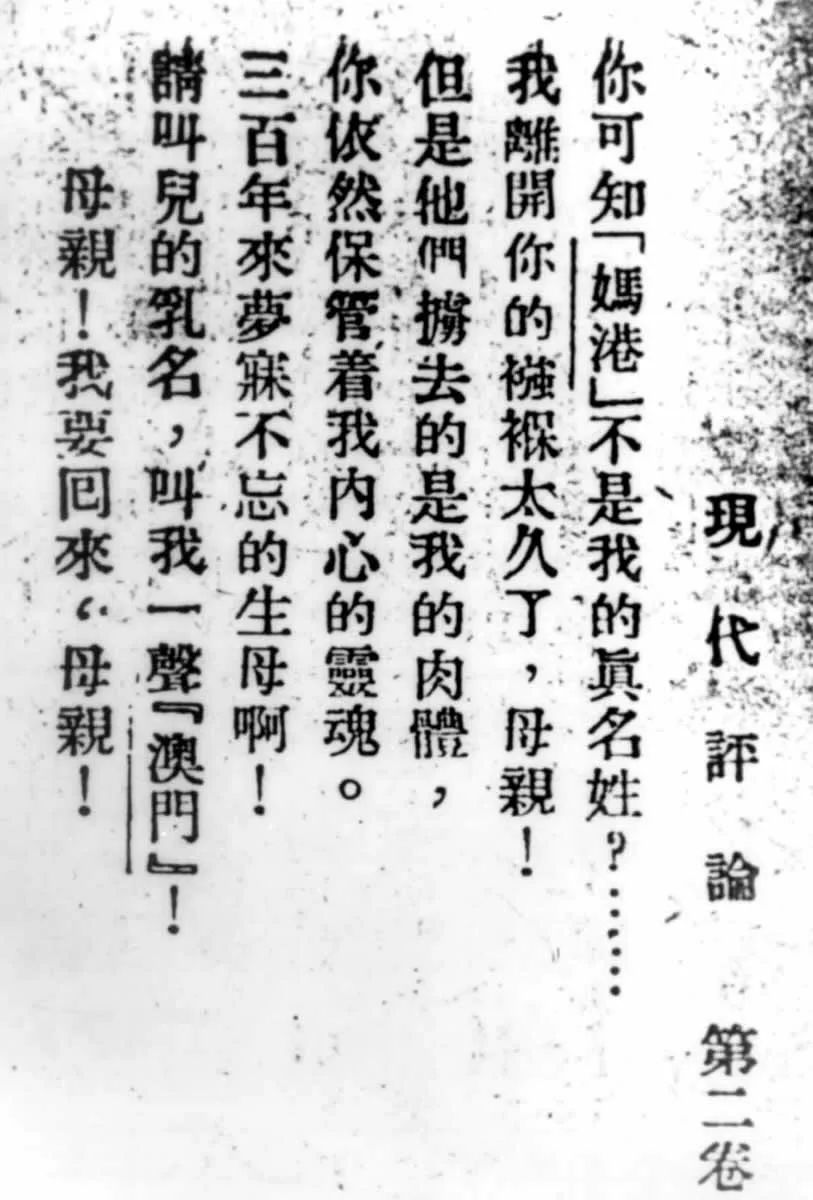 現代評論 第二卷
你可知「媽港」不是我的眞名姓?……
我離開你的襁褓太久了,母親!
但是他們擄去的是我的肉體,
你依然保管着我內心的靈魂。
三百年來夢寐不忘的生母啊!
請叫兒的乳名,叫我一聲『澳門』!
母親!我要回來,母親!